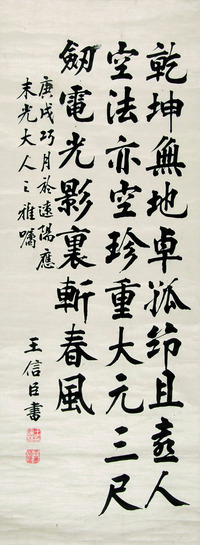 乾坤無地卓孤筇且喜人
空法亦空珍重大元三尺
劔電光影裏斬春風
庚戌巧月於遠陽應
末光大人之雅囑
王信臣書